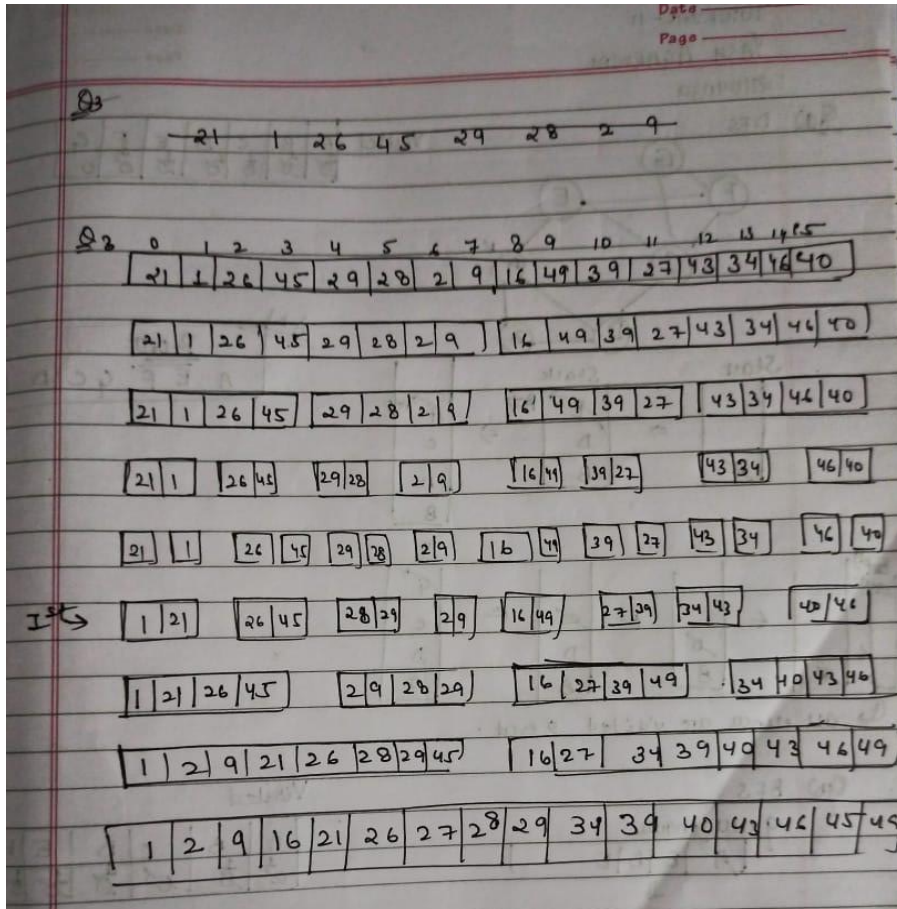 Date
Page
Q3
21 1 26 45 29 28 2 9
Q3 0 1 2 3 4 5 6 7 8 9 10 11 12 13 14 15
21 1 26 45 29 28 2 9 16 49 39 27 43 34 46 40
21 1 26 45 29 28 2 9 16 49 39 27 43 34 46 40
21 1 26 45 29 28 2 9 16 49 39 27 43 34 46 40
21 1 26 45 29 28 2 9 16 49 39 27 43 34 46 40
21 1 26 45 29 28 2 9 16 49 39 27 43 34 46 40
Ist → 1 21 26 45 28 29 2 9 16 49 27 39 34 43 40 46
1 21 26 45 2 9 28 29 16 27 39 49 34 40 43 46
1 2 9 21 26 28 29 45 16 27 34 39 40 43 46 49
1 2 9 16 21 26 27 28 29 34 39 40 43 46 45 49